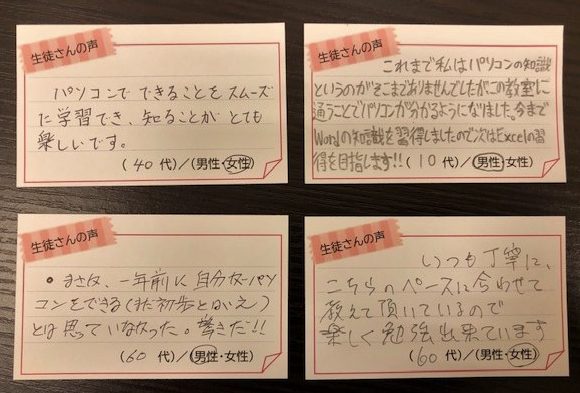 生徒さんの声
パソコンで できることを スムーズ
に学習でき、知ることが とても
楽しいです。
(40 代)/(男性・女性)
生徒さんの声
これまで私はパソコンの知識
というのがそこまでありませんでしたがこの教室に
通うことでパソコンが分かるようになりました。今まで
Wordの知識を習得しましたので次はExcelの習
得を目指します!!
(10 代)/(男性・女性)
生徒さんの声
・まさか、一年前に自分がパソ
コンをできる(まだ初歩とはいえ)
とは思っていなかった。驚きだ!!
(60 代)/(男性・女性)
生徒さんの声
いつも丁寧に、
こちらのペースに合わせて
教えて頂いているので
楽しく勉強出来ています
(60 代)/(男性・女性)